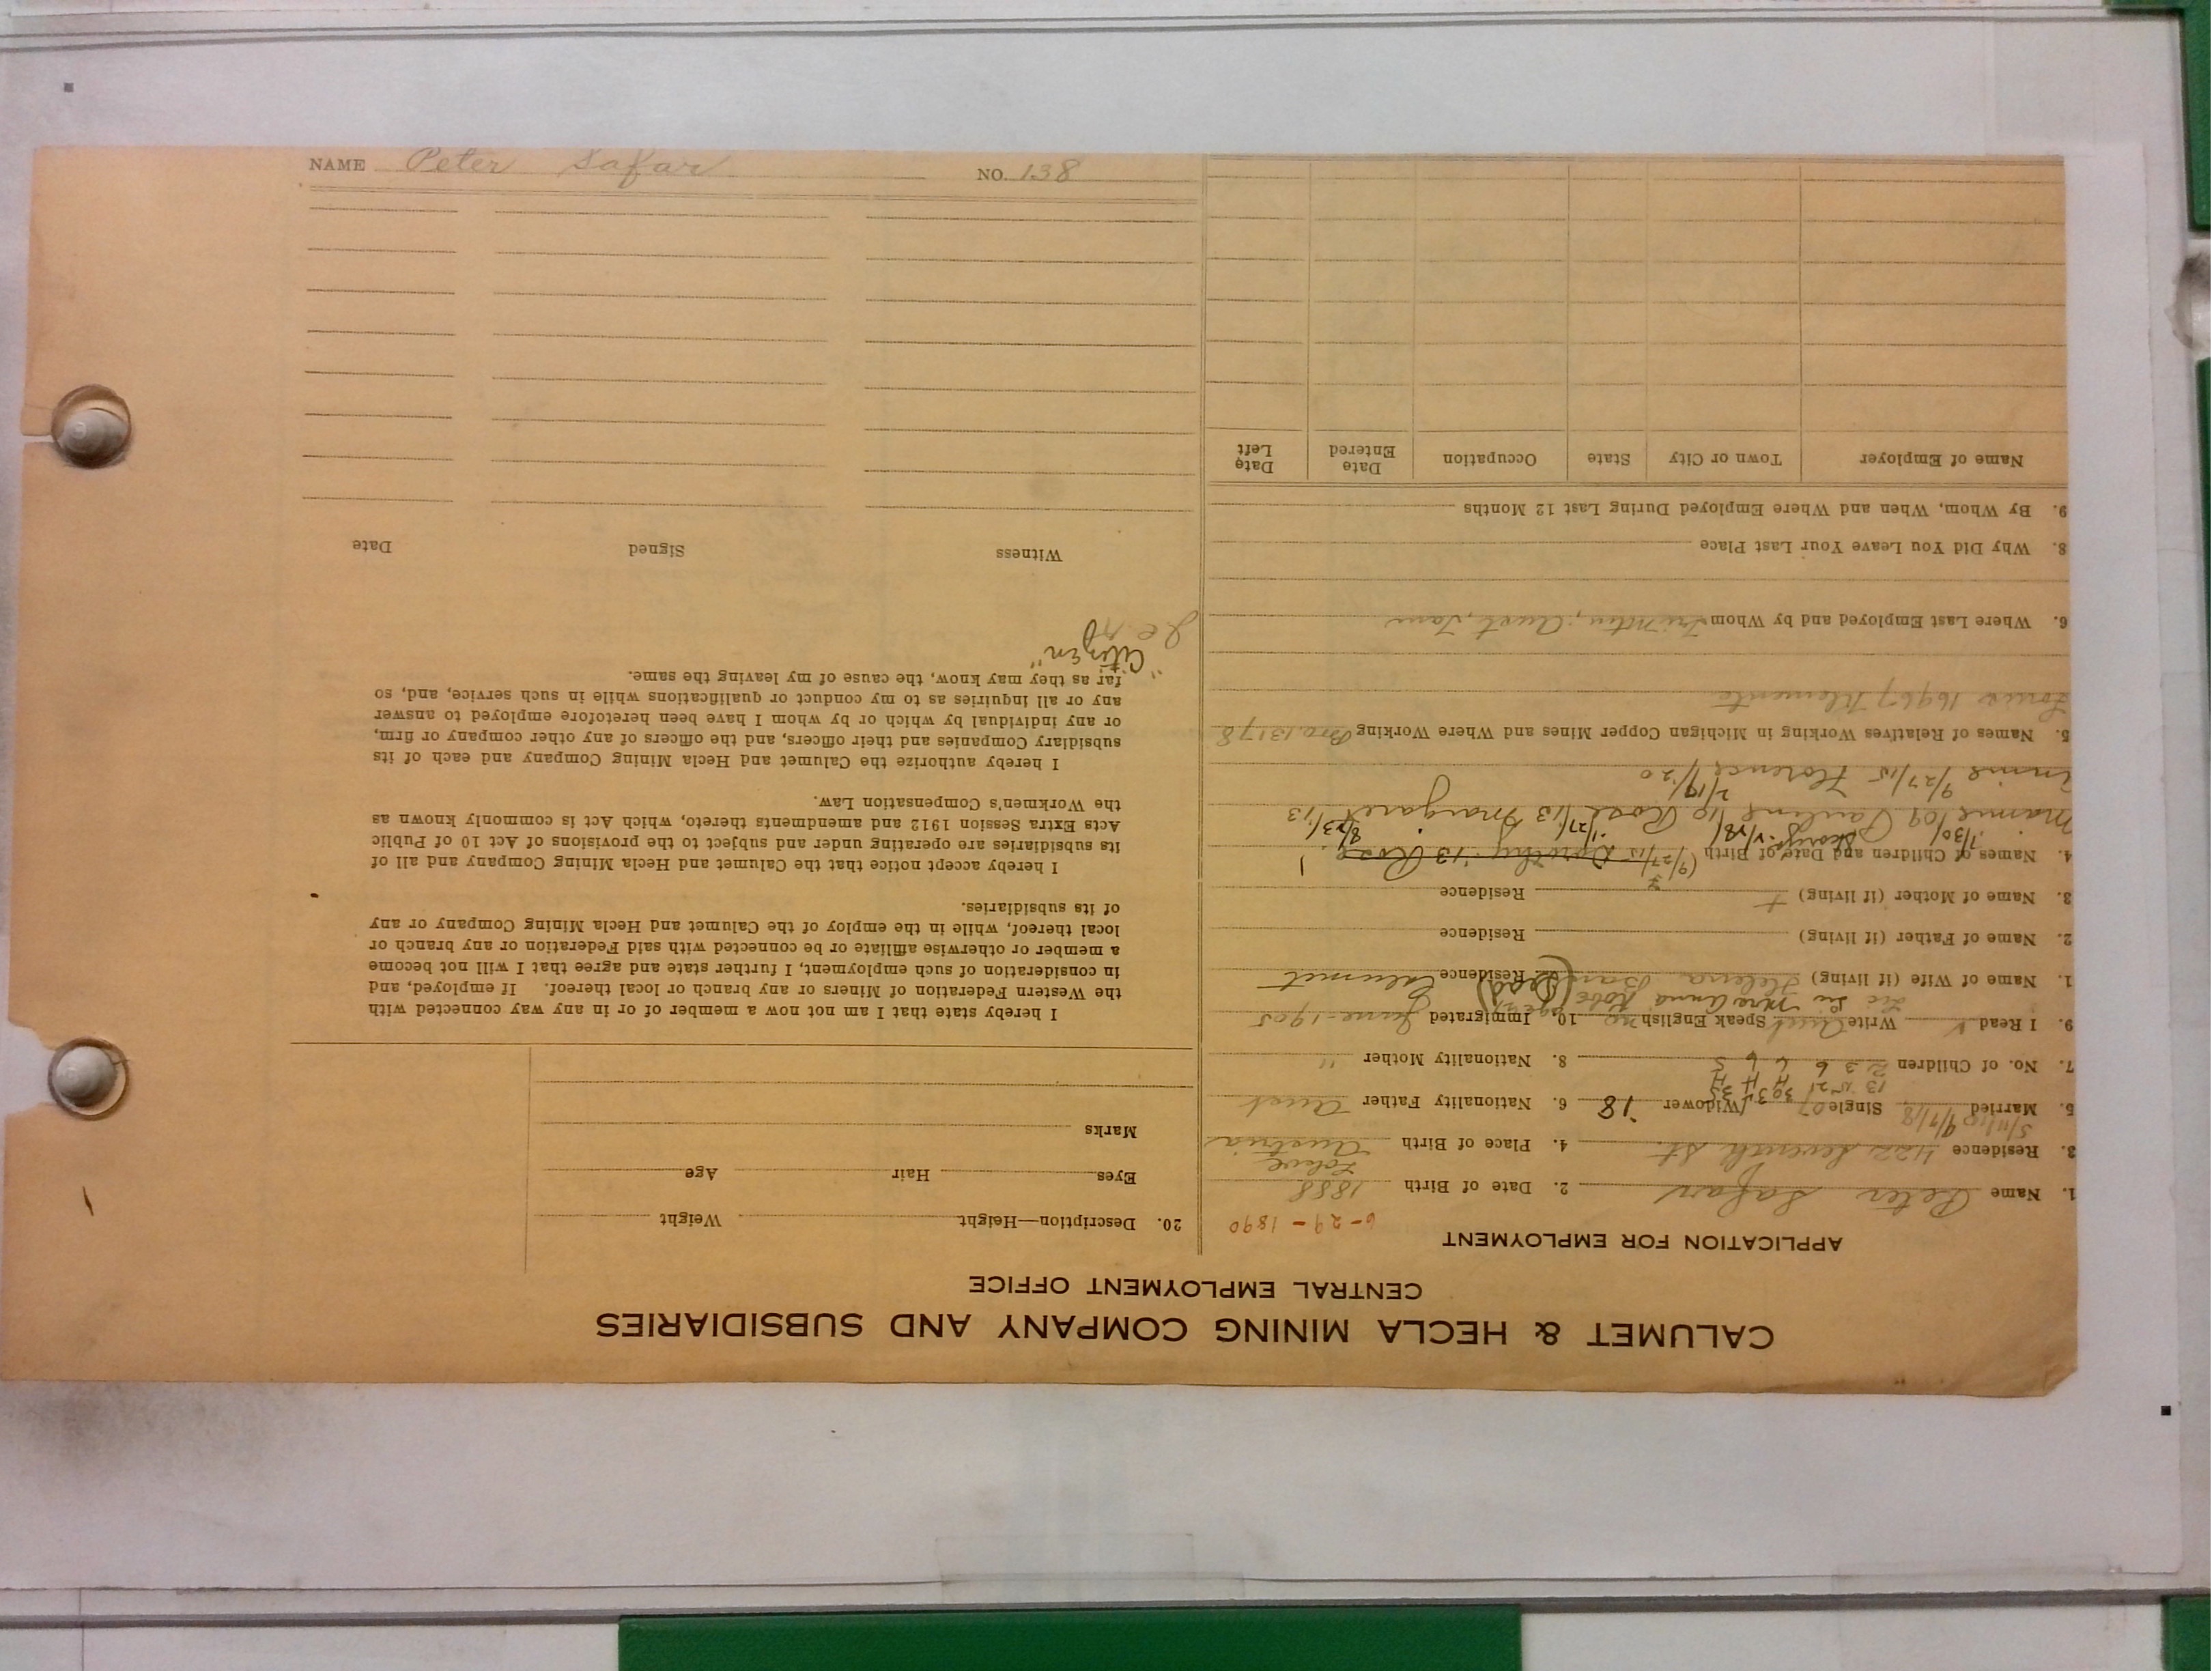 CALUMET & HECLA MINING COMPANY AND SUBSIDIARIES
CENTRAL EMPLOYMENT OFFICE
APPLICATION FOR EMPLOYMENT
6-29-1890
1. Name Peter Safar 2. Date of Birth 1888
3. Residence 422 Seventh St. 4. Place of Birth Austria
5. Married Single Widower '18 6. Nationality Father Aust
7. No. of Children 8. Nationality Mother "
9. I Read Write Aust Speak English no 10. Immigrated June-1905
1. Name of Wife (if living) Helena (Dead) Residence Calumet
2. Name of Father (if living) Residence
3. Name of Mother (if living) Residence
4. Names of Children and Date of Birth Dorothy '13 Rose
Mamie /09 Pauline /10 Rose /13 Margaret /13
Annie 9/27/15 Florence 2/19/20
5. Names of Relatives Working in Michigan Copper Mines and Where Working Bro. 13178
Louis 16967
6. Where Last Employed and by Whom
8. Why Did You Leave Your Last Place
9. By Whom, When and Where Employed During Last 12 Months
Name of Employer Town or City State Occupation Date Entered Date Left
20. Description—Height Weight
Eyes Hair Age
Marks
I hereby state that I am not now a member of or in any way connected with
the Western Federation of Miners or any branch or local thereof. If employed, and
in consideration of such employment, I further state and agree that I will not become
a member or otherwise affiliate or be connected with said Federation or any branch or
local thereof, while in the employ of the Calumet and Hecla Mining Company or any
of its subsidiaries.
I hereby accept notice that the Calumet and Hecla Mining Company and all of
its subsidiaries are operating under and subject to the provisions of Act 10 of Public
Acts Extra Session 1912 and amendments thereto, which Act is commonly known as
the Workmen's Compensation Law.
I hereby authorize the Calumet and Hecla Mining Company and each of its
subsidiary Companies and their officers, and the officers of any other company or firm,
or any individual by which or by whom I have been heretofore employed to answer
any or all inquiries as to my conduct or qualifications while in such service, and, so
far as they may know, the cause of my leaving the same.
"Citizen"
Witness Signed Date
NAME Peter Safar NO. 138